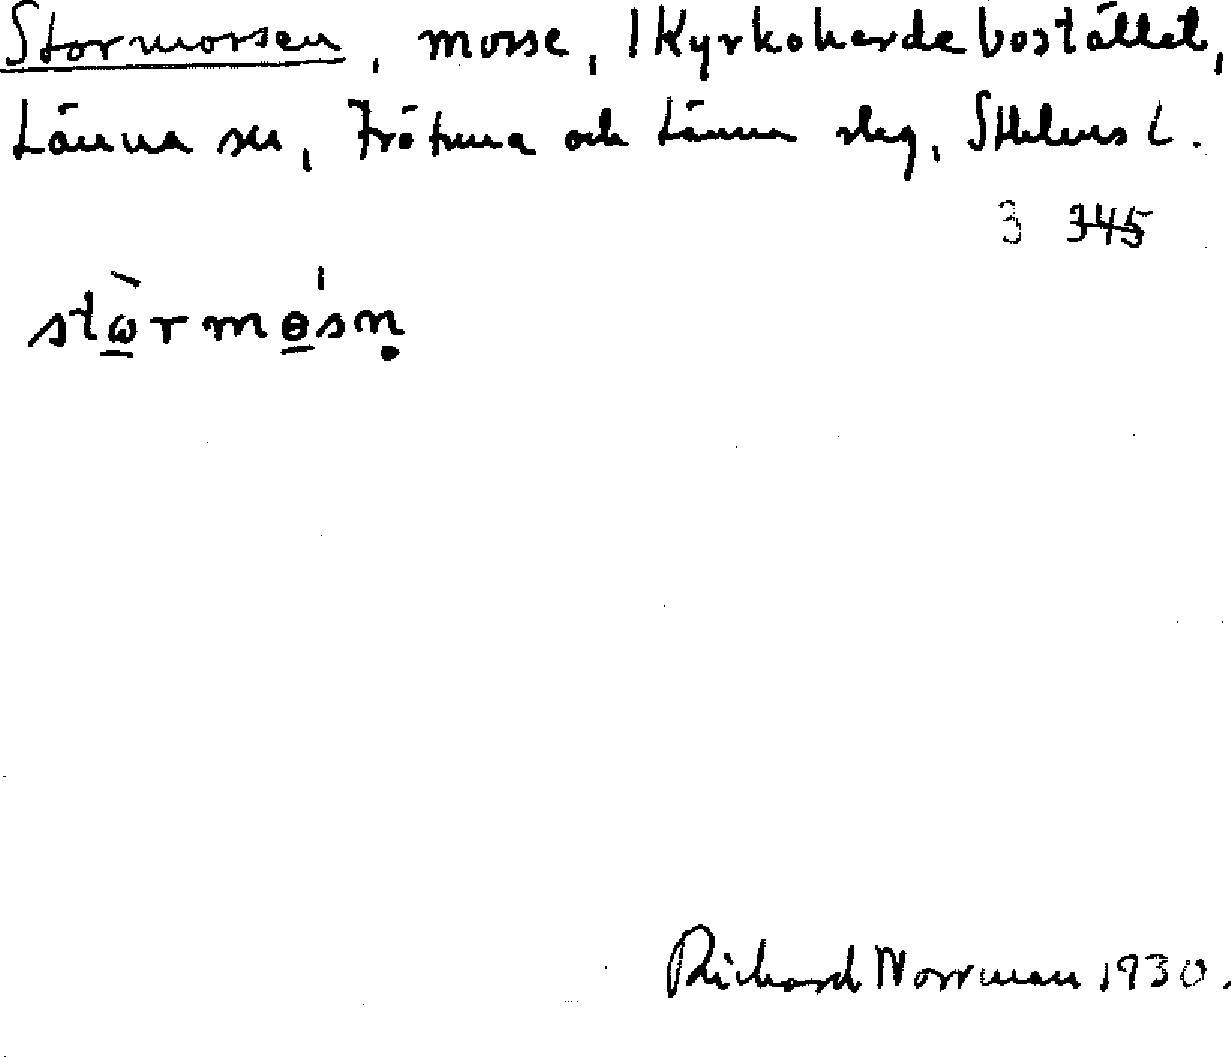 Stormossen, mosse, 1 Kyrkoherdebostället,
Länna sn, Frötuna och Länna slg, Sthlms L.
3 345
stὼ̱rmɵ̱́sṇ
Richard Norrman 1930.